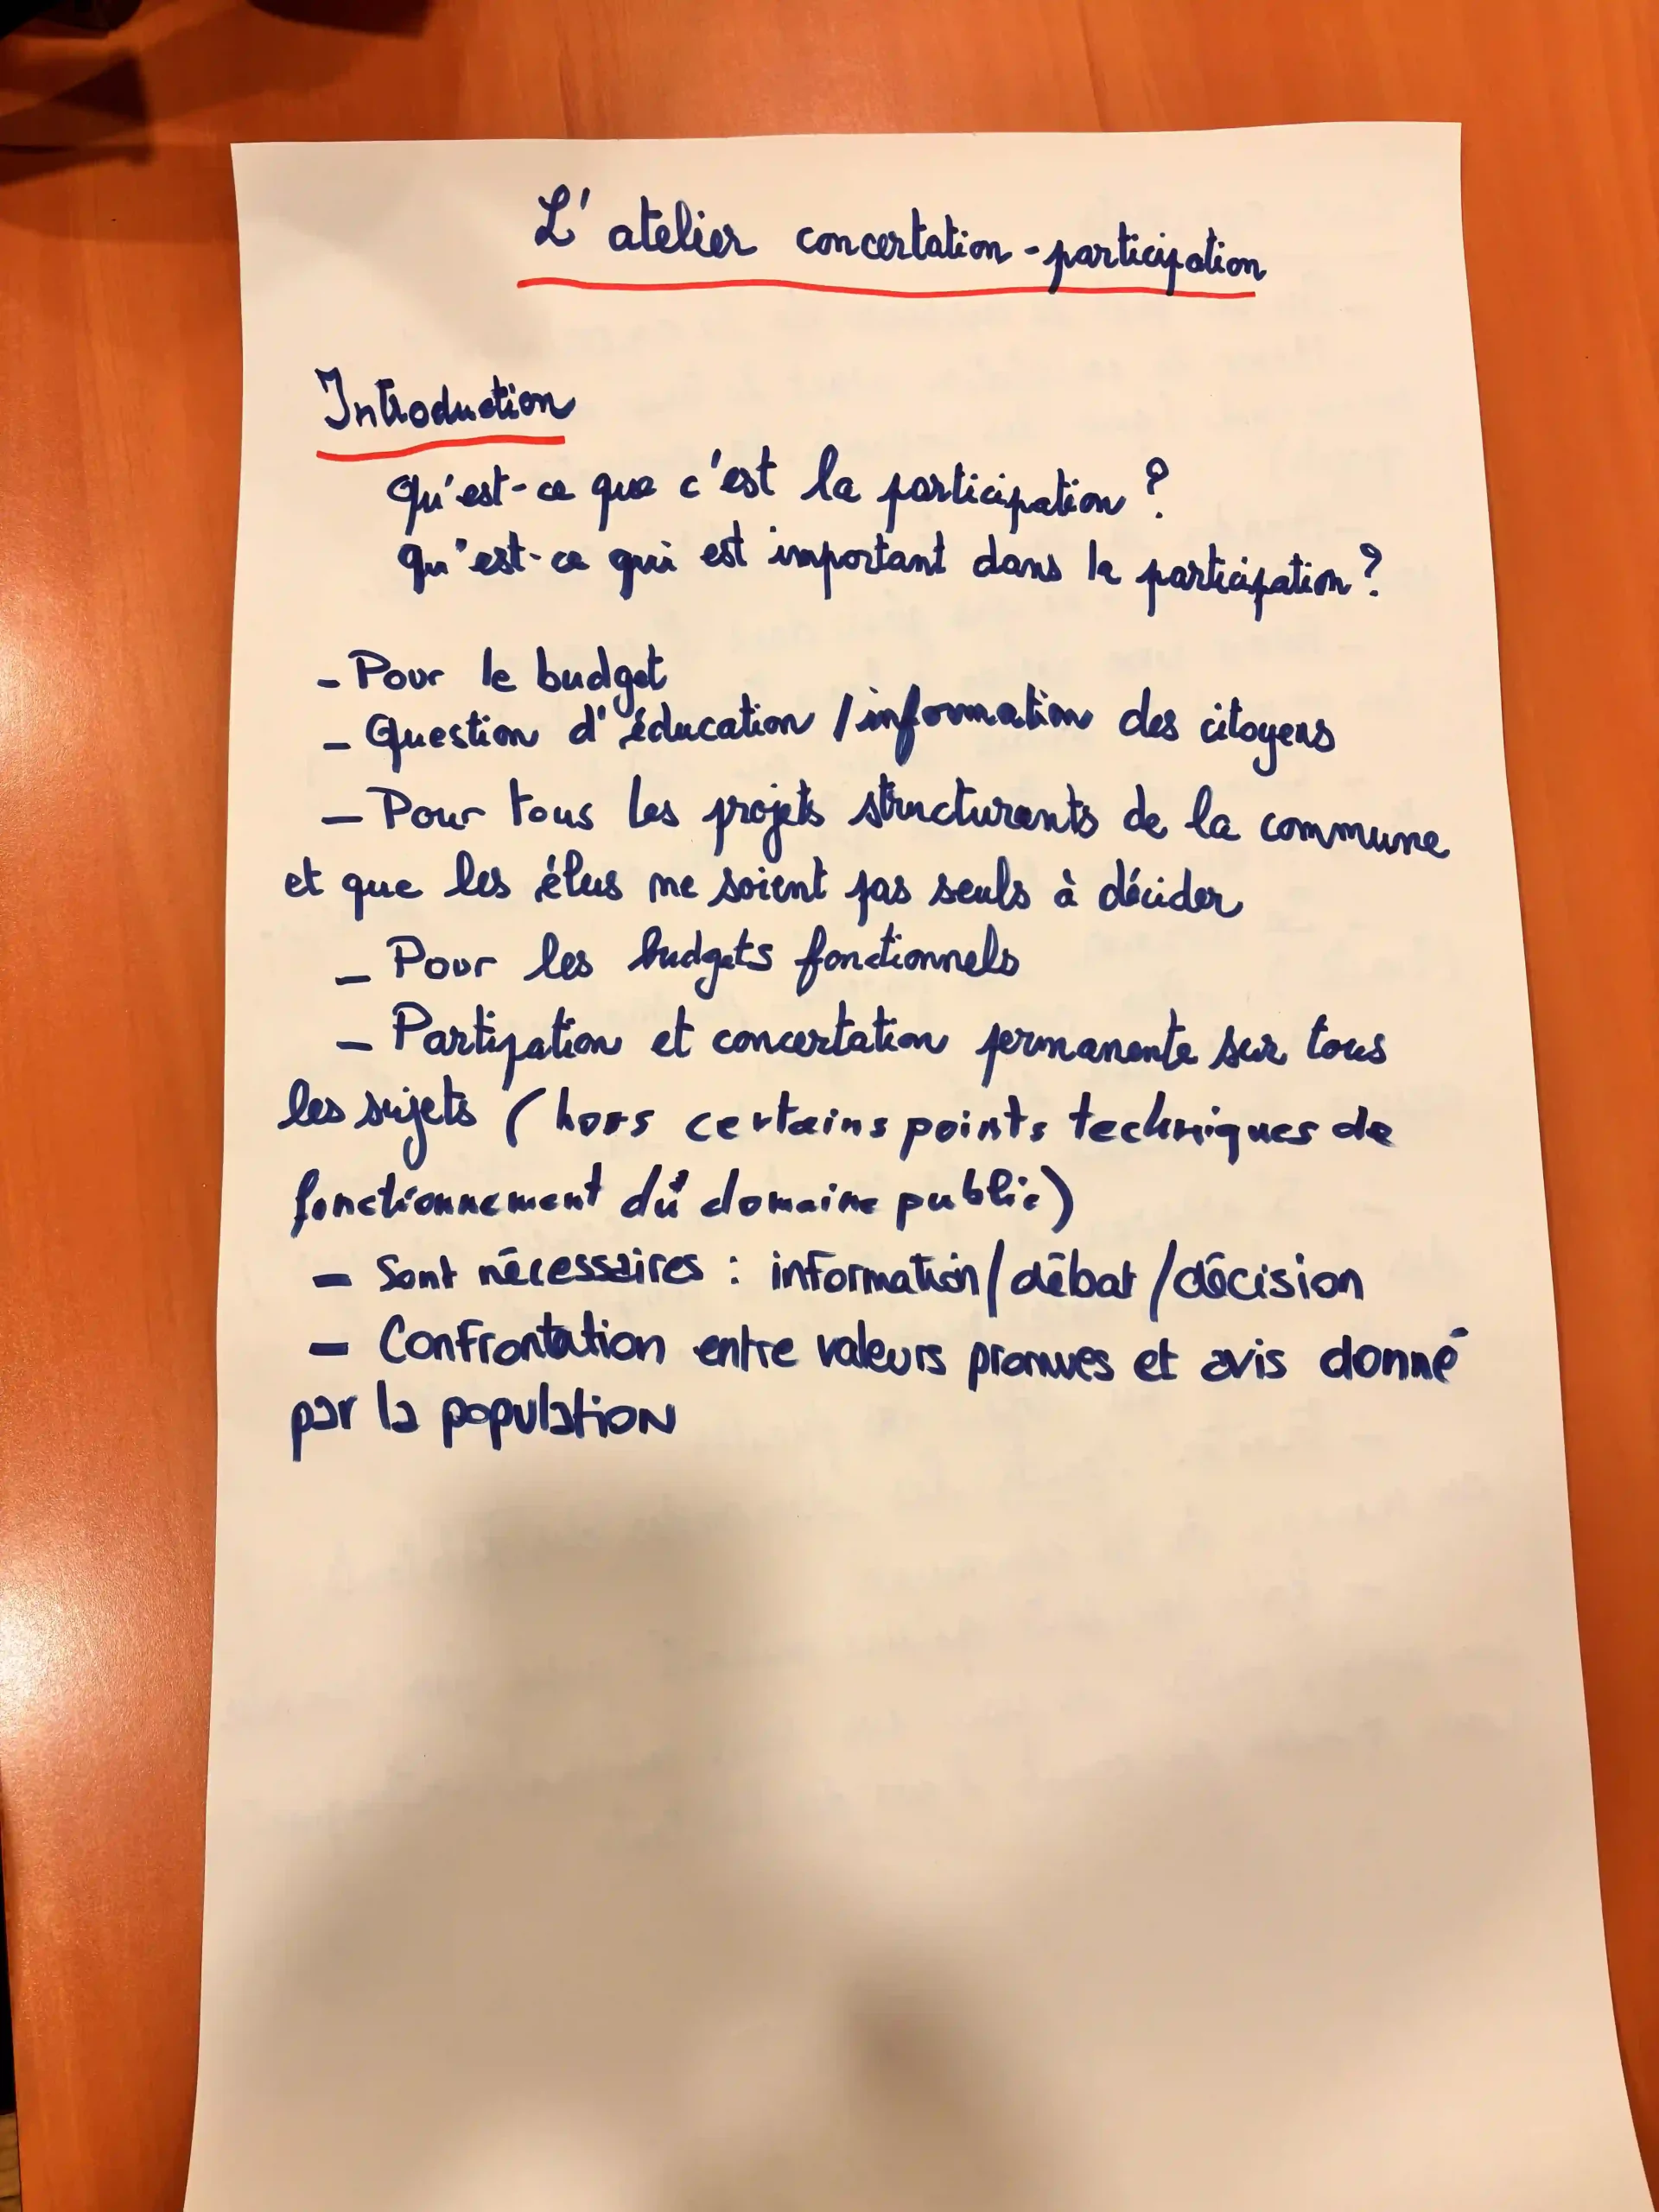 L'atelier concertation-participation
Introduction
Qu'est-ce que c'est la participation ?
Qu'est-ce qui est important dans la participation ?
- Pour le budget
- Question d'éducation / information des citoyens
- Pour tous les projets structurants de la commune
et que les élus ne soient pas seuls à décider
- Pour les budgets fonctionnels
- Partipation et concertation permanente sur tous
les sujets (hors certains points techniques de
fonctionnement du domaine public)
- Sont nécessaires : information/débat/décision
- Confrontation entre valeurs promues et avis donné
par la population